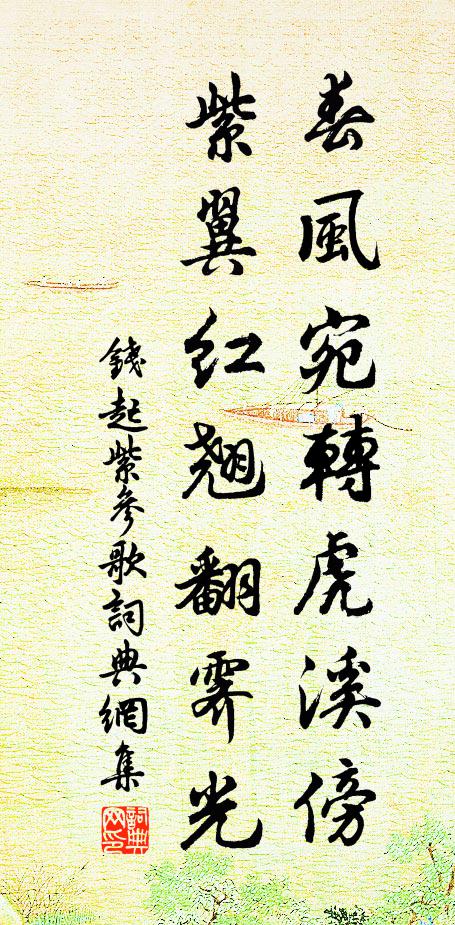 春風宛轉虎溪傍
紫翼红翹翻霽光
錢起紫參歌詞典網集
詞典网印